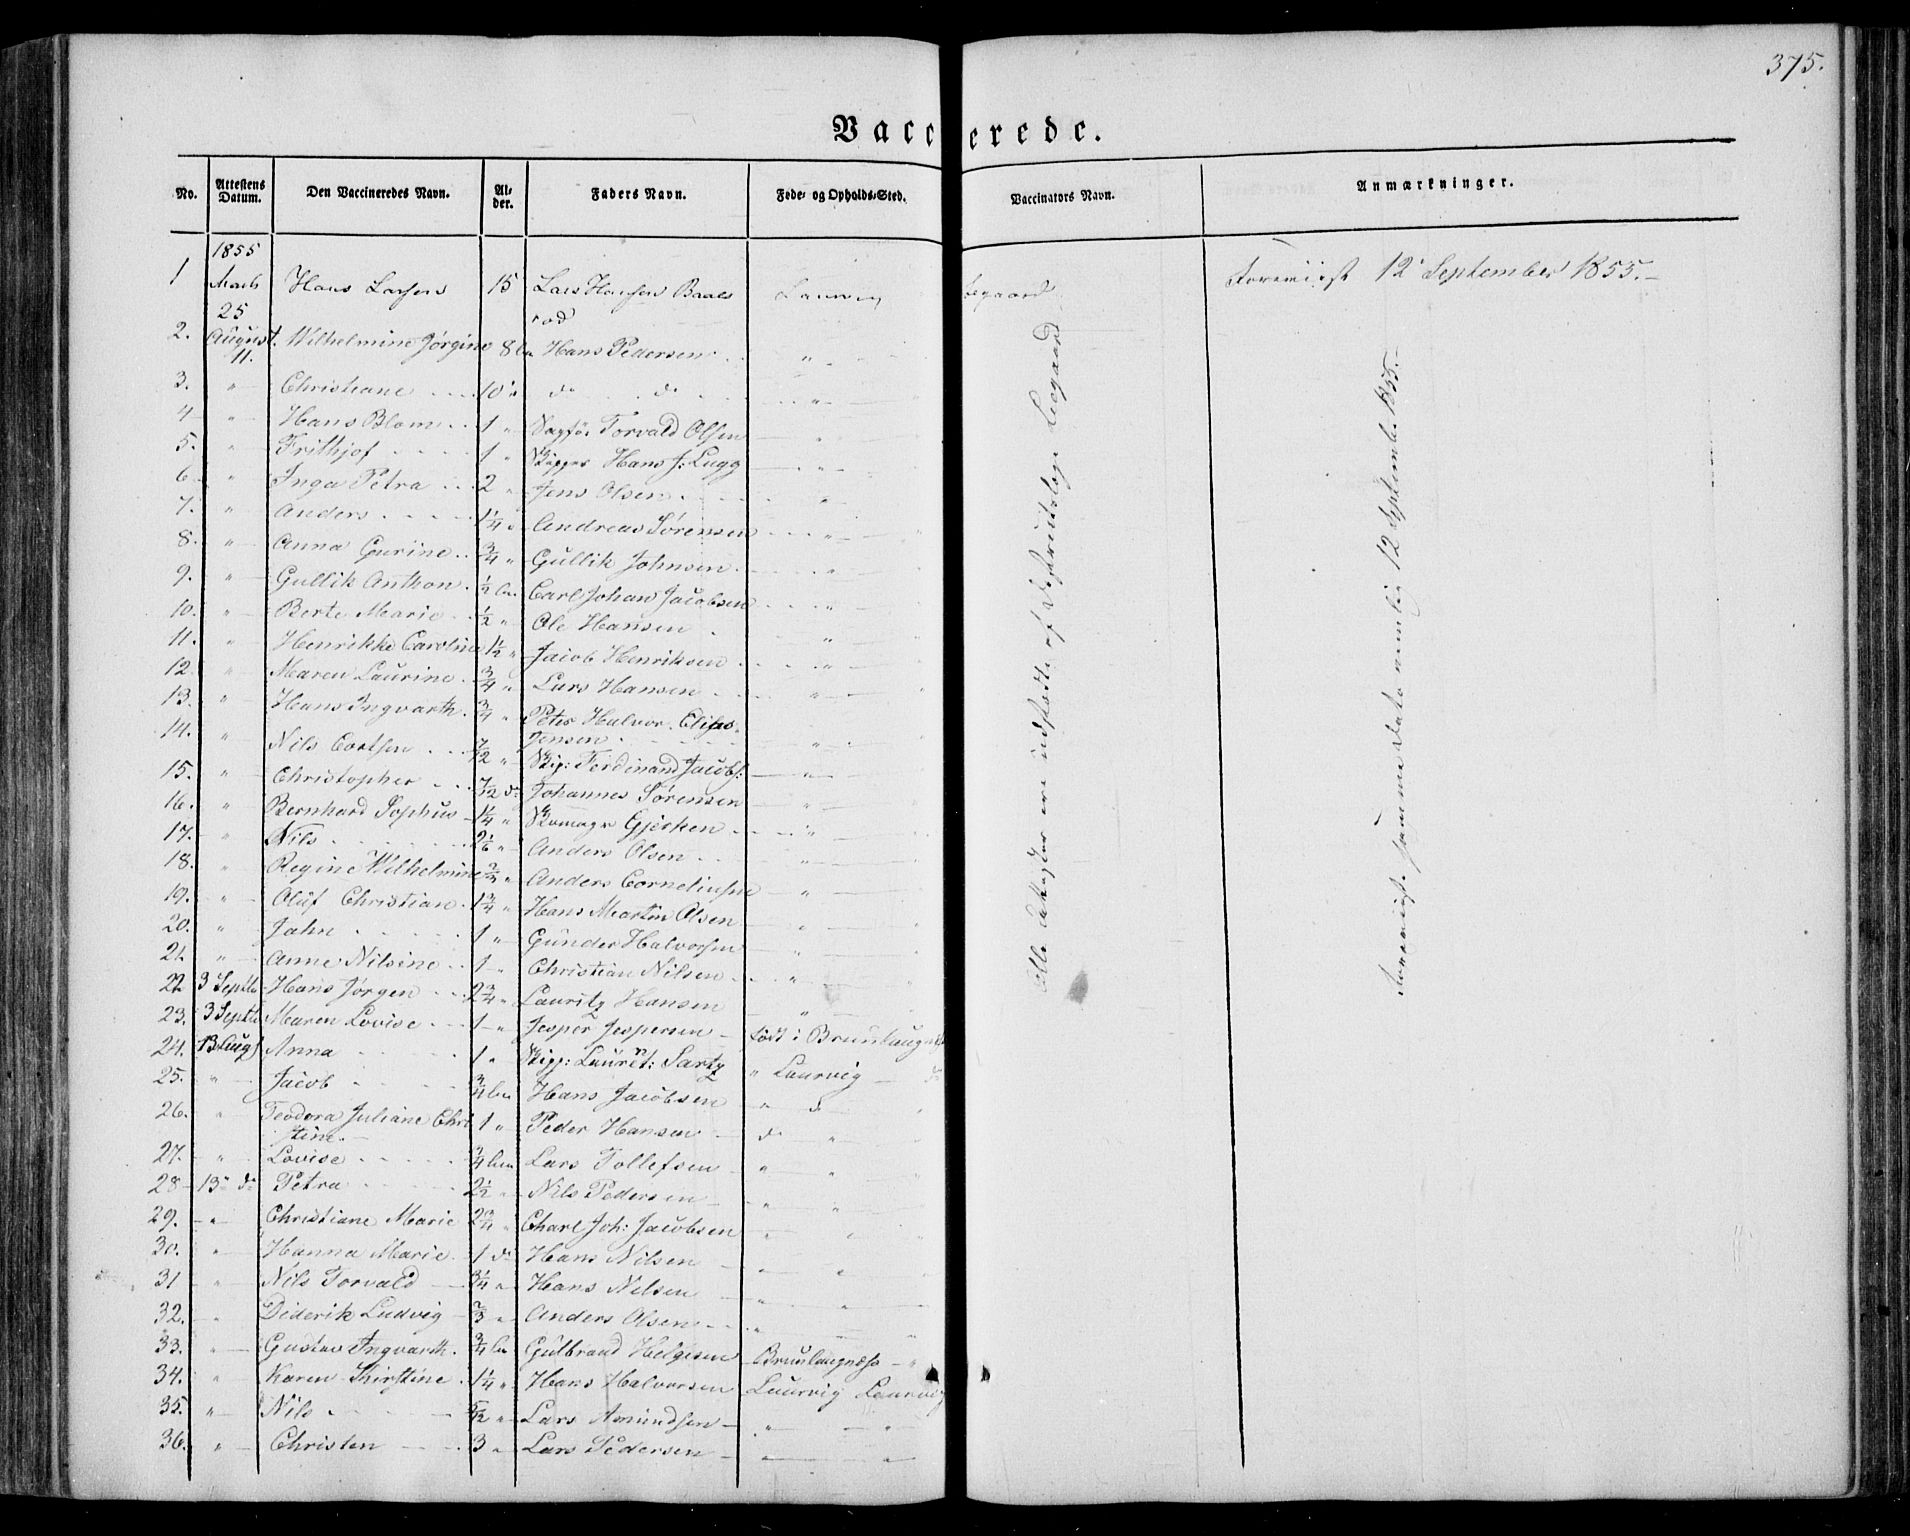 375.
Vaccinerede.
No. Attestens Datum. Den Vaccineredes Navn. Alder. Faders Navn. Føde- og Opholds-Sted. Vaccinators Navn. Anmærkninger.
1855
1 Marts 25 Hans Larsen 15 Lars Hansen Baalsrød Laurvig Foreviist 12 September 1855.
2. August 11. Wilhelmine Jørgine 8 Hans Pedersen "
3. " Christiane 10 do do "
4 " Hans Blom 1 " Torvald Olsen "
5. " Frithjof 1 " Skipper Hans J: Lugg "
6 " Inga Petra 2 " Jens Olsen "
7. " Anders 1¼ " Andreas Sørensen "
8. " Anna Gurine ¾ " Gullik Johnsen "
9. " Gullik Anthon ½ Carl Johan Jacobsen "
10. " Berte Marie ½ " Ole Hansen "
11. " Henrikke Caroline 1½ " Jacob Henriksen "
12. " Maren Laurine ¾ " Lars Hansen "
13. " Hans Ingvarth ¾ " Peter Halvor Jensen "
14. " Nils 7/12 " Skip: Ferdinand Jacobs: "
15. " Christopher 7/12 do Johannes Sørensen "
16. " Bernhard Sophus 1¼ " Gjerken "
17. " Nils 2 1/6 " Anders Olsen "
18. " Regine Wilhelmine " Anders Corneliusen "
19. " Oluf Christian 1¾ " Hans Martin Olsen "
20. " Jahn 1 " Gunder Halvorsen "
21. " Anne Nilsine 1 " Christian Nilsen "
22 3 Septbr Hans Jørgen 2¾ " Lauritz Hansen "
23. 3 Septbr Maren Lovise 1 " Jesper Jespersen født i Brunlaugnæs
24. 13 Aug Anna 1 " Skipp: Sartz " Laurvig do
25. " Jacob ¾ Hans Jacobsen " do "
26. " Teodora Juliane Christine 1 " Peder Hansen do "
27. " Lovise ¾ Lars Tollefsen " "
28 13 do Petra 2½ " Nils Pedersen " "
29. " Christiane Marie 2¾ " Charl Joh: Jacobsen " "
30. " Hanna Marie 1 do Hans Nilsen " "
31 " Nils Torvald 3¼ " Hans Nilsen " "
32. " Diderik Ludvig ⅔ " Anders Olsen " "
33. " Gustav Ingvarth ¾ Gulbrand Helgesen Brunlaugnæs "
34. " Karen Kirstine 1¼ " Hans Halvorsen Laurvig Laurvig
35. " Nils 5/12 " Lars Amundsen " "
36. " Christen 3 " Lars Pedersen
Alle Attester ere udstædte af Districtslæge Leegaard
Foreviist samme Dato nemlig 12 September 1855.